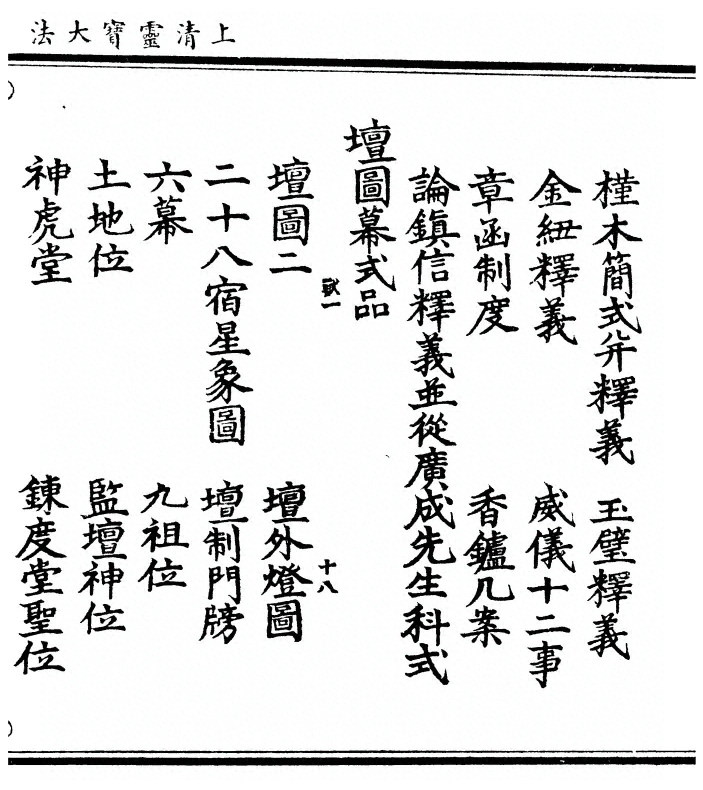 上清靈寶大法
槿木簡式并釋義 玉璧釋義
金紐釋義 威儀十二事
章函制度 香鑪几案
論鎮信釋義並從廣成先生科式
壇圖幕式品
壇圖二 壇外燈圖十八
二十八宿星象圖 壇制門牓
六幕 九祖位
土地位 監壇神位
神虎堂 鍊度堂聖位